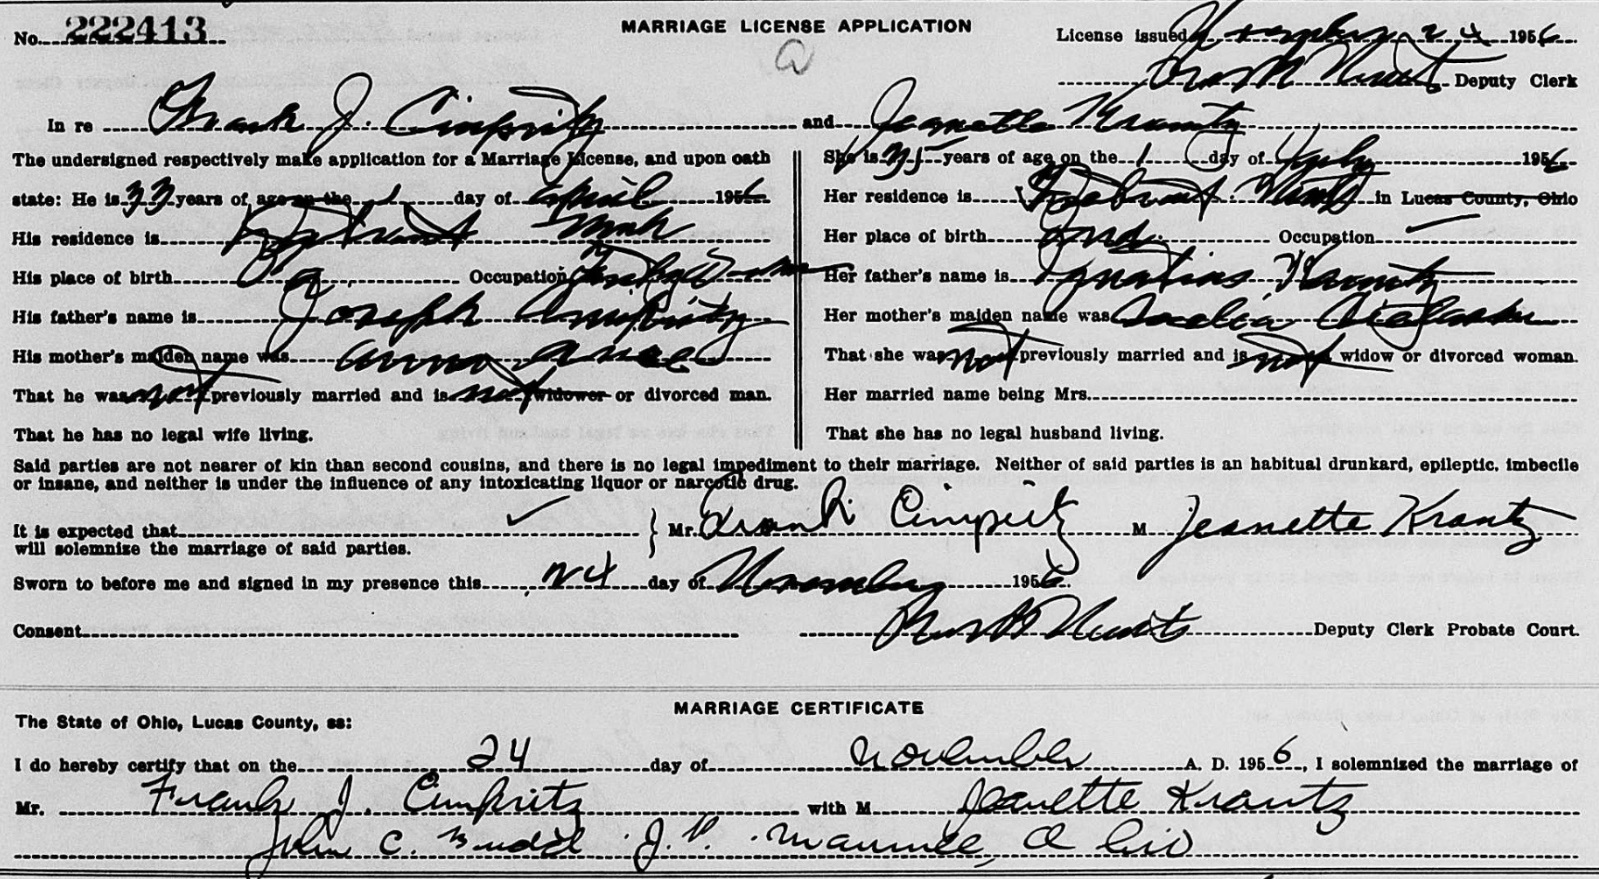 No. 222413
MARRIAGE LICENSE APPLICATION
License issued November 24 1956
Deputy Clerk
In re Frank J. Cimpritz and Jeanette Krantz
The undersigned respectively make application for a Marriage License, and upon oath
state: He is 33 years of age on the 1 day of April 1956
His residence is Detroit Mich
His place of birth Pa Occupation
His father's name is Joseph Cimpritz
His mother's maiden name was Anna
That he was not previously married and is not widower or divorced man.
That he has no legal wife living.
She is 35 years of age on the 1 day of July 1956
Her residence is Detroit Mich in Lucas County, Ohio
Her place of birth Ind. Occupation
Her father's name is Ignatius Krantz
Her mother's maiden name was
That she was not previously married and is not widow or divorced woman.
Her married name being Mrs.
That she has no legal husband living.
Said parties are not nearer of kin than second cousins, and there is no legal impediment to their marriage. Neither of said parties is an habitual drunkard, epileptic, imbecile
or insane, and neither is under the influence of any intoxicating liquor or narcotic drug.
It is expected that
will solemnize the marriage of said parties.
Mr. Frank Cimpritz M Jeanette Krantz
Sworn to before me and signed in my presence this 24 day of November 1956
Consent Deputy Clerk Probate Court.
MARRIAGE CERTIFICATE
The State of Ohio, Lucas County, ss:
I do hereby certify that on the 24 day of November A. D. 1956, I solemnized the marriage of
Mr. Frank J. Cimpritz with M Jeanette Krantz
John C. J.P. Maumee, Ohio